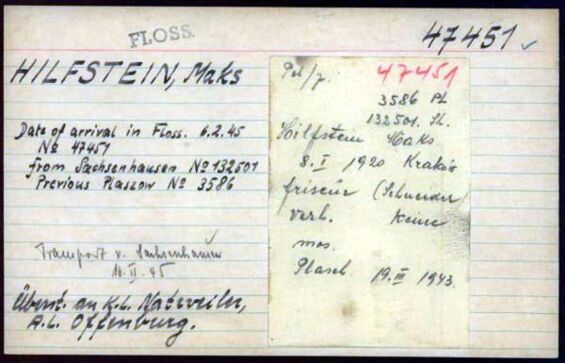 FLOSS.
47451
HILFSTEIN, Maks
Date of arrival in Floss. 6.2.45
No 47451
from Sachsenhausen No 132501
Previous Plaszow No 3586
Transport v. Sachsenhausen
Überst. an K.L. Natzweiler,
A.L. Offenburg.
Pol/J. 47451
3586 Pl.
132501. Sh.
Hilfstein Maks
8. I 1920 Kraków
friseur (Schneider
verh. Keine
mos.
Plasch. 19. III 1943.